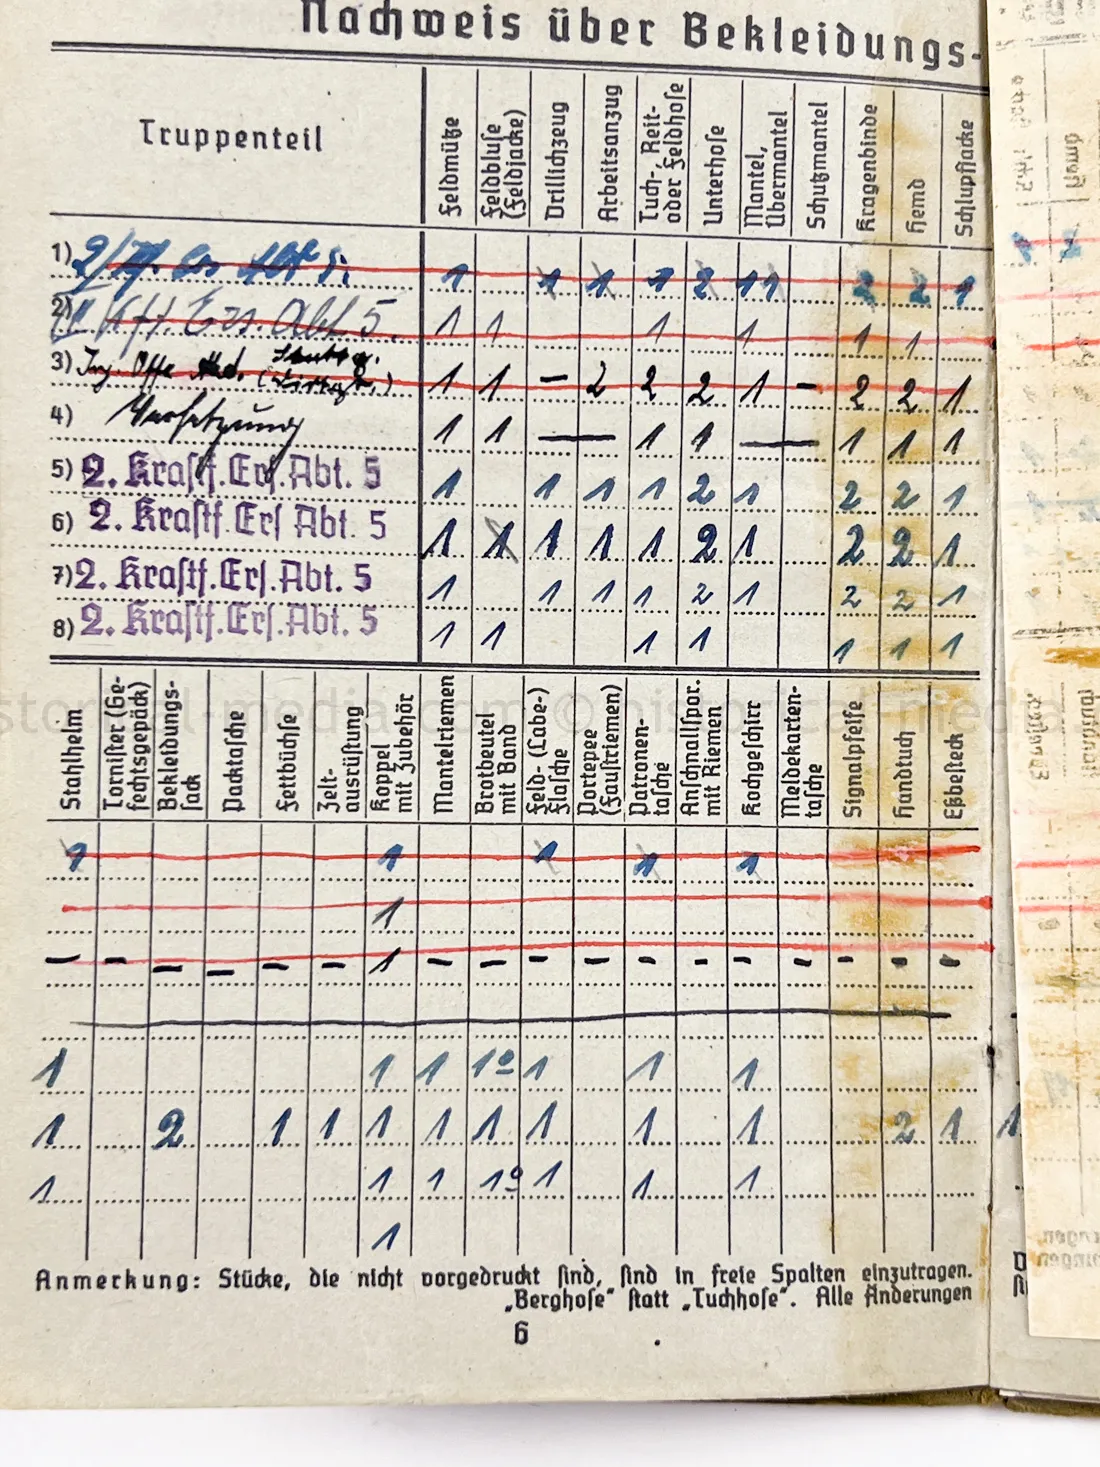 Nachweis über Bekleidungs-
Truppenteil
Feldmütze
Feldbluse (Feldjacke)
Drillichzeug
Arbeitsanzug
Tuch-, Reit- oder Feldhose
Unterhose
Mantel, Übermantel
Schutzmantel
Kragenbinde
Hemd
Schlupfjacke
1) 1 1 1 1 2 1 1 2 2 1
2) Kff. Ers. Abt 5. 1 1 1 1 1 1
3) 1 1 – 2 2 2 1 – 2 2 1
4) Versetzung 1 1 — 1 1 — 1 1 1
5) 2. Kraftf. Ers. Abt. 5 1 1 1 1 2 1 2 2 1
6) 2. Kraftf. Ers. Abt. 5 1 1 1 1 1 2 1 2 2 1
7) 2. Kraftf. Ers. Abt. 5 1 1 1 1 2 1 2 2 1
8) 2. Kraftf. Ers. Abt. 5 1 1 1 1 1 1 1
historical-media.com © historical-media
Stahlhelm
Tornister (Ge-
fechtsgepäck)
Bekleidungs-
sack
Packtasche
Fettbüchse
Zelt-
ausrüstung
Koppel
mit Zubehör
Mantelriemen
Brotbeutel
mit Band
Feld- (Labe-)
Flasche
Portepee
(Faustriemen)
Patronen-
tasche
Anschnallspor.
mit Riemen
Kochgeschirr
Meldekarten-
tasche
Signalpfeife
Handtuch
Eßbesteck
1 1 1 1 1
1
– – – – – – 1 – – – – – – – – – – –
1 1 1 1 1 1 1
1 2 1 1 1 1 1 1 1 1 2 1
1 1 1 1 1 1 1
1
Anmerkung: Stücke, die nicht vorgedruckt sind, sind in freie Spalten einzutragen.
„Berghose" statt „Tuchhose". Alle Änderungen
6